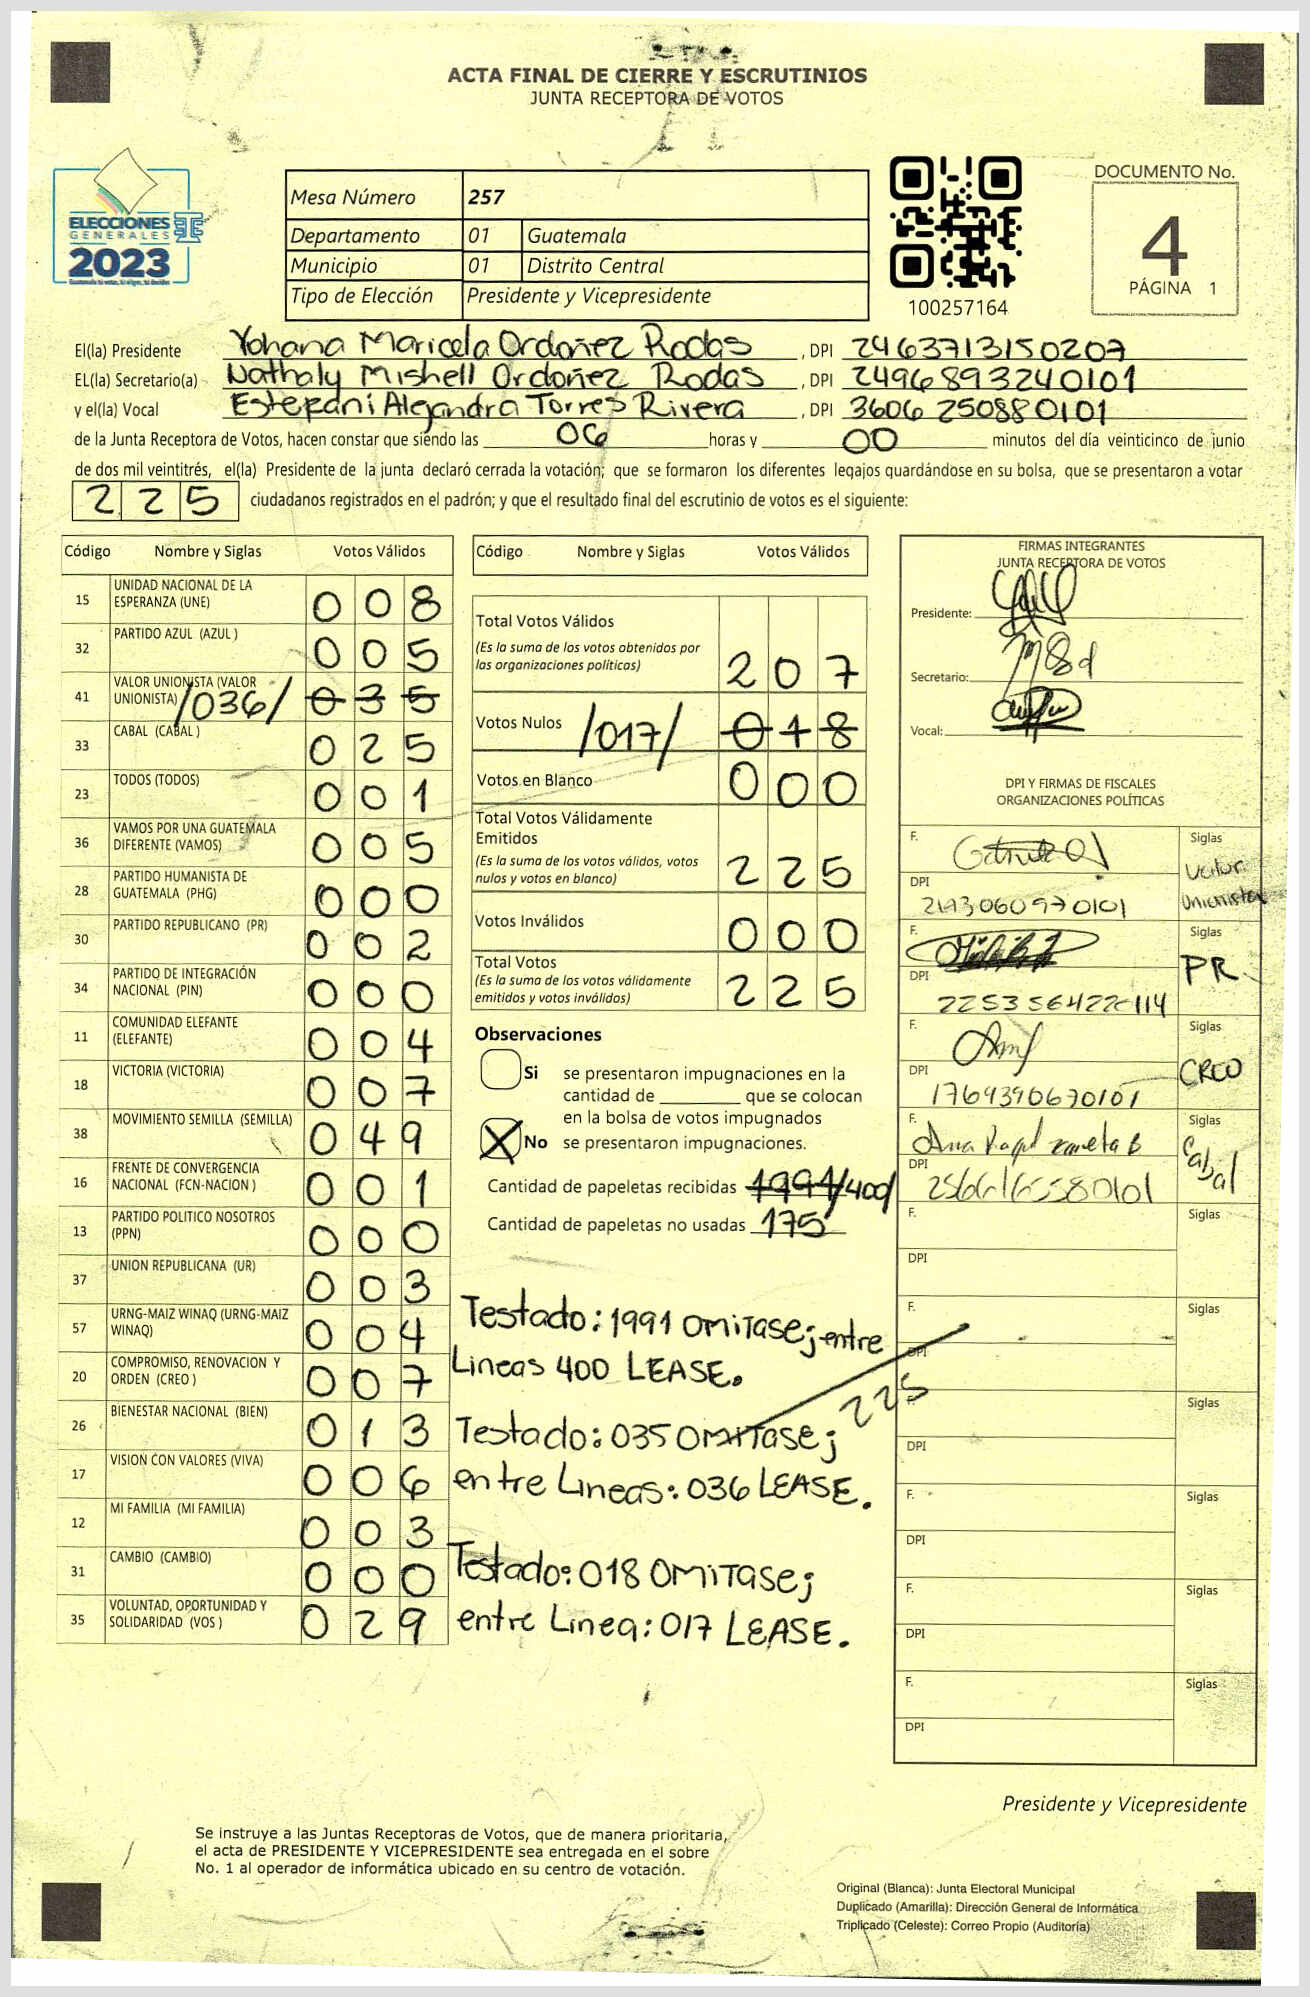 ACTA FINAL DE CIERRE Y ESCRUTINIOS
JUNTA RECEPTORA DE VOTOS
ELECCIONES
GENERALES
2023
Mesa Número 257
Departamento 01 Guatemala
Municipio 01 Distrito Central
Tipo de Elección Presidente y Vicepresidente
100257164
DOCUMENTO No.
4
PÁGINA 1
El(la) Presidente Yohana Maricela Ordoñez Rodas , DPI 2463713150207
EL(la) Secretario(a) Nathaly Mishell Ordoñez Rodas , DPI 2496893240101
y el(la) Vocal Estepani Alejandra Torres Rivera , DPI 3606250880101
de la Junta Receptora de Votos, hacen constar que siendo las 06 horas y 00 minutos del día veinticinco de junio
de dos mil veintitrés, el(la) Presidente de la junta declaró cerrada la votación; que se formaron los diferentes legajos quardándose en su bolsa, que se presentaron a votar
225 ciudadanos registrados en el padrón; y que el resultado final del escrutinio de votos es el siguiente:
Código Nombre y Siglas Votos Válidos
15 UNIDAD NACIONAL DE LA ESPERANZA (UNE) 008
32 PARTIDO AZUL (AZUL ) 005
41 VALOR UNIONISTA (VALOR UNIONISTA) /036/ 035
33 CABAL (CABAL ) 025
23 TODOS (TODOS) 001
36 VAMOS POR UNA GUATEMALA DIFERENTE (VAMOS) 005
28 PARTIDO HUMANISTA DE GUATEMALA (PHG) 000
30 PARTIDO REPUBLICANO (PR) 002
34 PARTIDO DE INTEGRACIÓN NACIONAL (PIN) 000
11 COMUNIDAD ELEFANTE (ELEFANTE) 004
18 VICTORIA (VICTORIA) 007
38 MOVIMIENTO SEMILLA (SEMILLA) 049
16 FRENTE DE CONVERGENCIA NACIONAL (FCN-NACION ) 001
13 PARTIDO POLITICO NOSOTROS (PPN) 000
37 UNION REPUBLICANA (UR) 003
57 URNG-MAIZ WINAQ (URNG-MAIZ WINAQ) 004
20 COMPROMISO, RENOVACION Y ORDEN (CREO ) 007
26 BIENESTAR NACIONAL (BIEN) 013
17 VISION CON VALORES (VIVA) 006
12 MI FAMILIA (MI FAMILIA) 003
31 CAMBIO (CAMBIO) 000
35 VOLUNTAD, OPORTUNIDAD Y SOLIDARIDAD (VOS ) 029
Código Nombre y Siglas Votos Válidos
Total Votos Válidos
(Es la suma de los votos obtenidos por
las organizaciones políticas) 207
Votos Nulos /017/ 018
Votos en Blanco 000
Total Votos Válidamente
Emitidos
(Es la suma de los votos válidos, votos
nulos y votos en blanco) 225
Votos Inválidos 000
Total Votos
(Es la suma de los votos válidamente
emitidos y votos inválidos) 225
Observaciones
Si se presentaron impugnaciones en la
cantidad de ________ que se colocan
en la bolsa de votos impugnados
X No se presentaron impugnaciones.
Cantidad de papeletas recibidas 1991/400/
Cantidad de papeletas no usadas 175
Testado: 1991 OMITASE; entre
Lineas 400 LEASE.
225
Testado: 035 OMITASE;
entre Lineas: 036 LEASE.
Testado: 018 OMITASE;
entre Linea: 017 LEASE.
FIRMAS INTEGRANTES
JUNTA RECEPTORA DE VOTOS
Presidente:
Secretario:
Vocal:
DPI Y FIRMAS DE FISCALES
ORGANIZACIONES POLÍTICAS
F. Siglas Valor Unionista
DPI 2193060970101
F. Siglas PR
DPI
F. Siglas CREO
DPI 1764390670101
F. Ana B Siglas Cabal
DPI
F. Siglas
DPI
F. Siglas
DPI
F. Siglas
DPI
F. Siglas
DPI
F. Siglas
DPI
F. Siglas
DPI
Presidente y Vicepresidente
Se instruye a las Juntas Receptoras de Votos, que de manera prioritaria,
el acta de PRESIDENTE Y VICEPRESIDENTE sea entregada en el sobre
No. 1 al operador de informática ubicado en su centro de votación.
Original (Blanca): Junta Electoral Municipal
Duplicado (Amarilla): Dirección General de Informática
Triplicado (Celeste): Correo Propio (Auditoría)